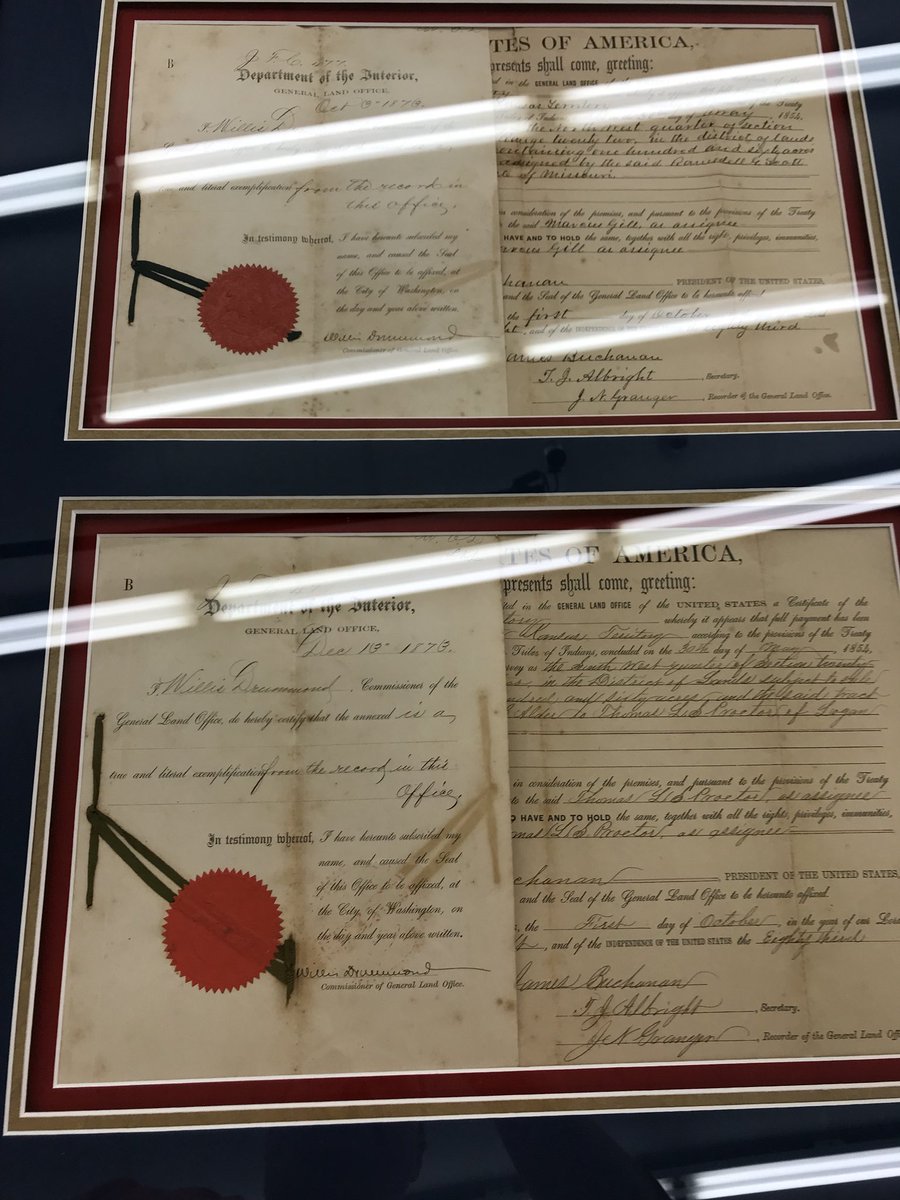 B
Department of the Interior,
GENERAL LAND OFFICE,
Oct 3 1873.
I Willis D
true and literal exemplification from the record in
this Office.
In testimony whereof, I have hereunto subscribed my
name, and caused the Seal
of this Office to be affixed, at
the City of Washington, on
the day and year above written.
Willis Drummond
Commissioner of General Land Office.
TES OF AMERICA,
presents shall come, greeting:
ed in the GENERAL LAND OFFICE
the Treaty
1854,
the North West quarter of section
range twenty two, in the district of lands
containing one hundred and sixty acres
assigned by the said Ransdell G Scott
te of Missouri
n consideration of the premises, and pursuant to the provisions of the Treaty
the said Marcus Gill, as assignee
HAVE AND TO HOLD the same, together with all the right, privileges, immunities,
rcus Gill as assignee
chanan PRESIDENT OF THE UNITED STATES,
and the Seal of the General Land Office to be hereunto affixed
the first day of October
and of the INDEPENDENCE OF third
ames Buchanan
T. J. Albright, Secretary.
J. N. Granger, Recorder of the General Land Office.
B
Department of the Interior,
GENERAL LAND OFFICE,
Dec 13 1873.
I Willis Drummond, Commissioner of the
General Land Office, do hereby certify that the annexed is a
true and literal exemplification from the record in this
Office,
In testimony whereof, I have hereunto subscribed my
name, and caused the Seal
of this Office to be affixed, at
the City of Washington, on
the day and year above written.
Willis Drummond
Commissioner of General Land Office.
TES OF AMERICA,
presents shall come, greeting:
ted in the GENERAL LAND OFFICE of the UNITED STATES a Certificate of the
tory whereby it appears that full payment has been
Kansas Territory according to the provisions of the Treaty
Tribes of Indians, concluded on the 30th day of May, 1854,
rvey as the South West quarter of Section twenty
in the District of Lands subject to sale
hundred and sixty acres and the said tract
Alder to Thomas L. S. Proctor of Logan
in consideration of the premises, and pursuant to the provisions of the Treaty
to the said Thomas L. S. Proctor, as assignee
O HAVE AND TO HOLD the same, together with all the right, privileges, immunities,
mas L. S. Proctor, as assignee
chanan, PRESIDENT OF THE UNITED STATES,
and the Seal of the General Land Office to be hereunto affixed.
the First day of October, in the year of our Lord
and of the INDEPENDENCE OF THE UNITED STATES the Eighty third
James Buchanan
T. J. Albright, Secretary.
J. N. Granger, Recorder of the General Land Office